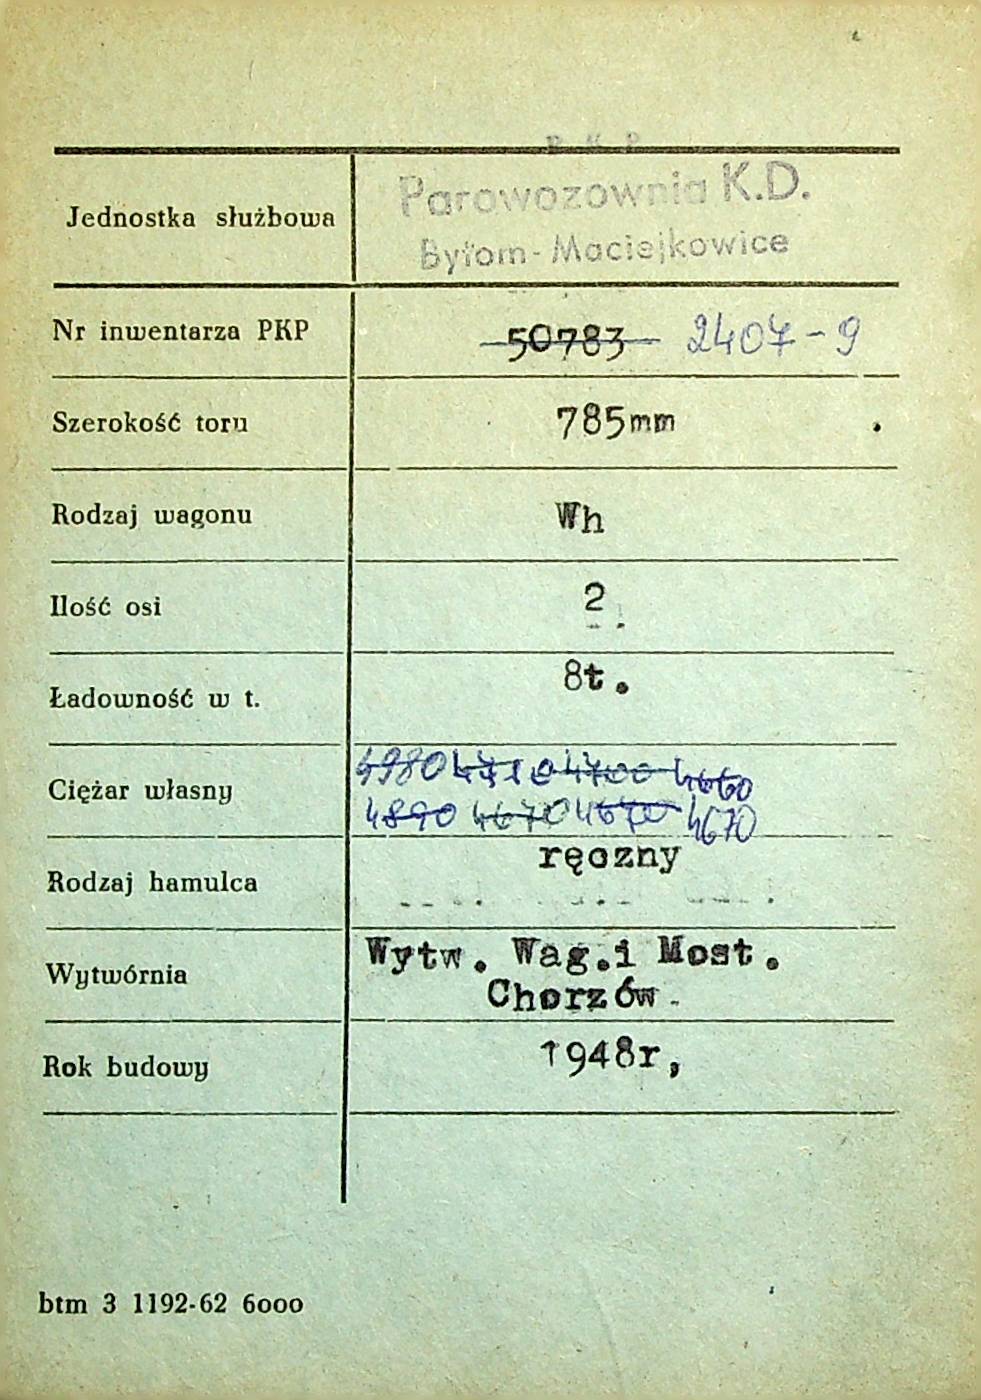 P K P
Jednostka służbowa Parowozownia K.D.
Bytom-Maciejkowice
Nr inwentarza PKP 50783 2407-9
Szerokość toru 785mm
Rodzaj wagonu Wh
Ilość osi 2
Ładowność w t. 8t.
Ciężar własny 4980 4710 4700 4660
4890 4670 4670 4670
Rodzaj hamulca ręczny
Wytwórnia Wytw. Wag.i Most.
Chorzów.
Rok budowy 1948r,
btm 3 1192-62 6000